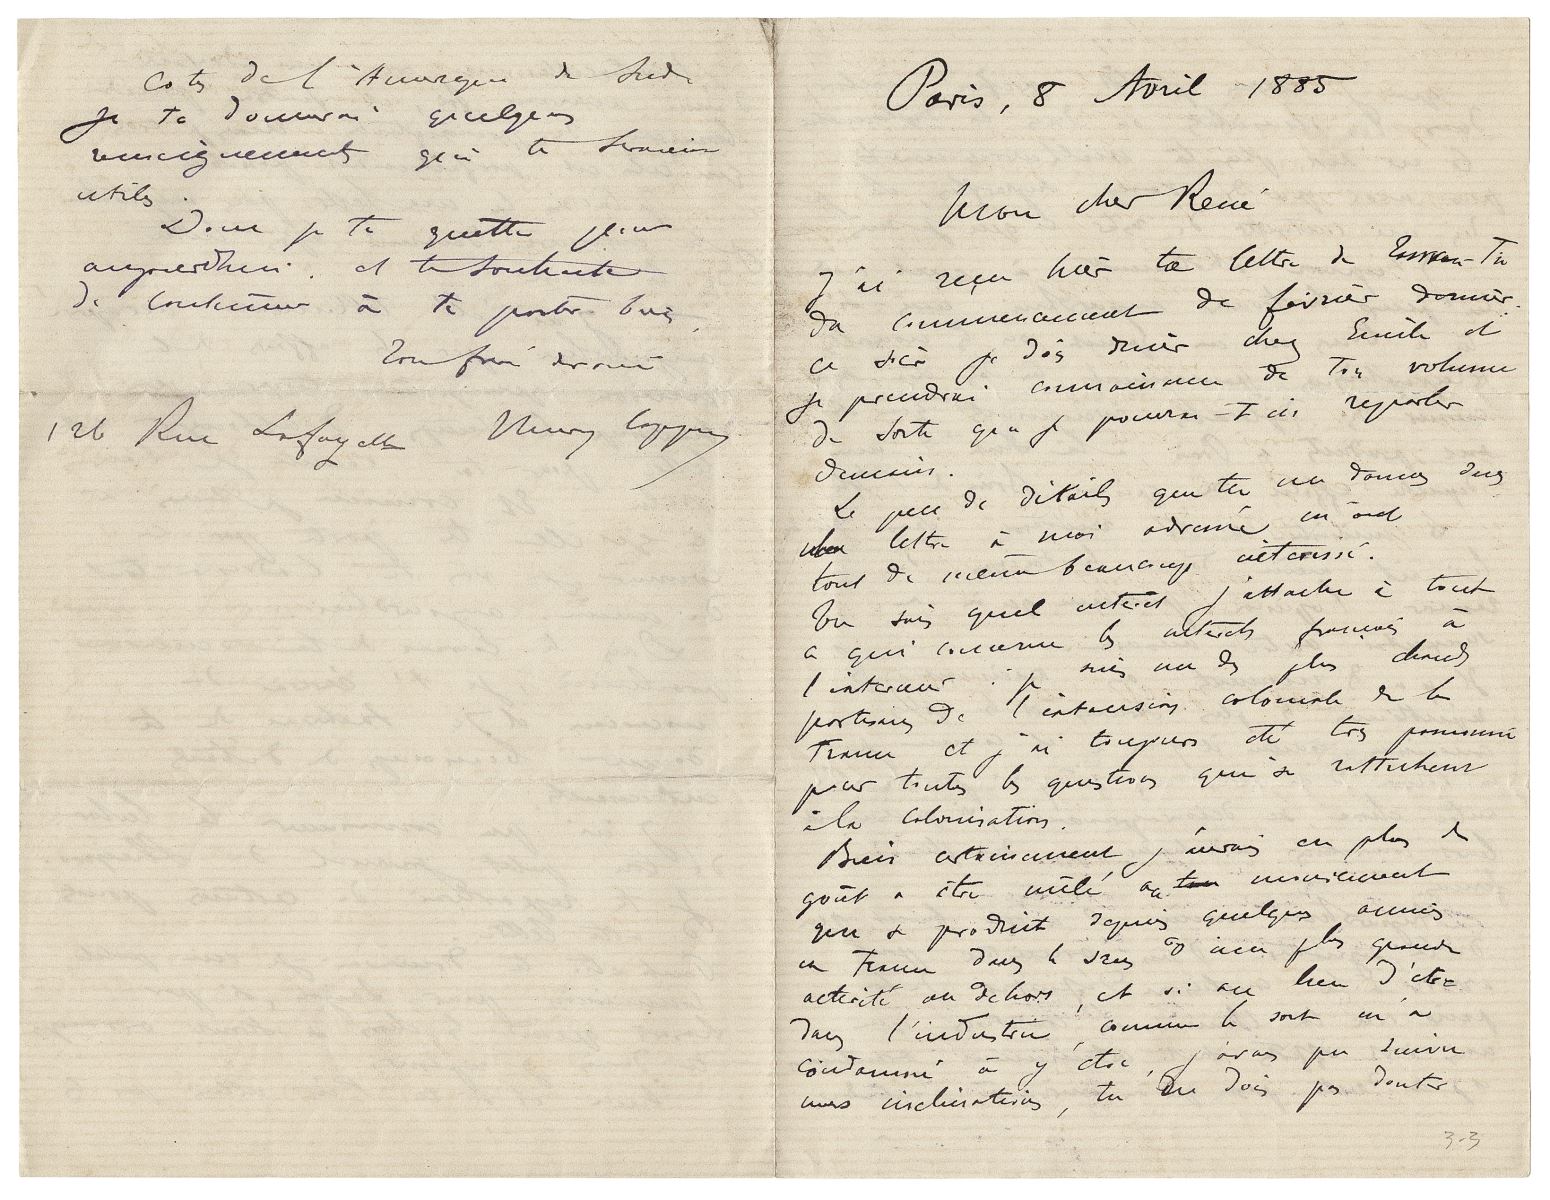 Paris, 8 Avril 1885
Mon cher René
J'ai reçu hier ta lettre de
du commencement de février dernier.
ce soir je dois diner chez Emile et
je prendrai connaissance de ton volume
de sorte que je pourrai t'en reparler
demain.
Le peu de détails que tu me donnes dans
lettre à moi adressée m'ont
tout de même beaucoup intéressé.
Tu sais quel intérêt j'attache à tout
ce qui concerne les intérêts français à
je suis un des plus chauds
partisans de coloniale de la
France et j'ai toujours été très passionné
pour toutes les questions qui se rattachent
à la colonisation.
Bien certainement j'aurais eu plus de
goût a être mêlé au mouvement
que se produit depuis quelques années
en France dans le sens d'une plus grande
activité au dehors, et si au lieu d'être
dans l'industrie, comme le sort m'a
condamné à y être, j'avais pu suivre
mes inclinations, tu ne dois pas douter
3-3
côtés de l'Amérique du Sud
je te donnerai quelques
renseignements qui te seraient
utiles.
Donc je te quitte pour
aujourd'hui. et te souhaite
de continuer à te porter bien.
Ton frère dévoué
126 Rue Lafayette Henry